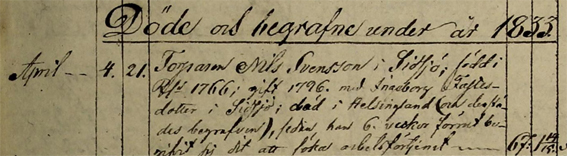 Döde och begrafne under år 1833
April — 4. 21. Torparen Nils Svensson i Sidsjö, född i
1766; gift 1796 med Ingeborg
dotter i Sidsjö; död i Helsingland (och der
des begrafven), sedan han 6. veckor förut be-
sig dit att söka arbetsförtjenst — 67.